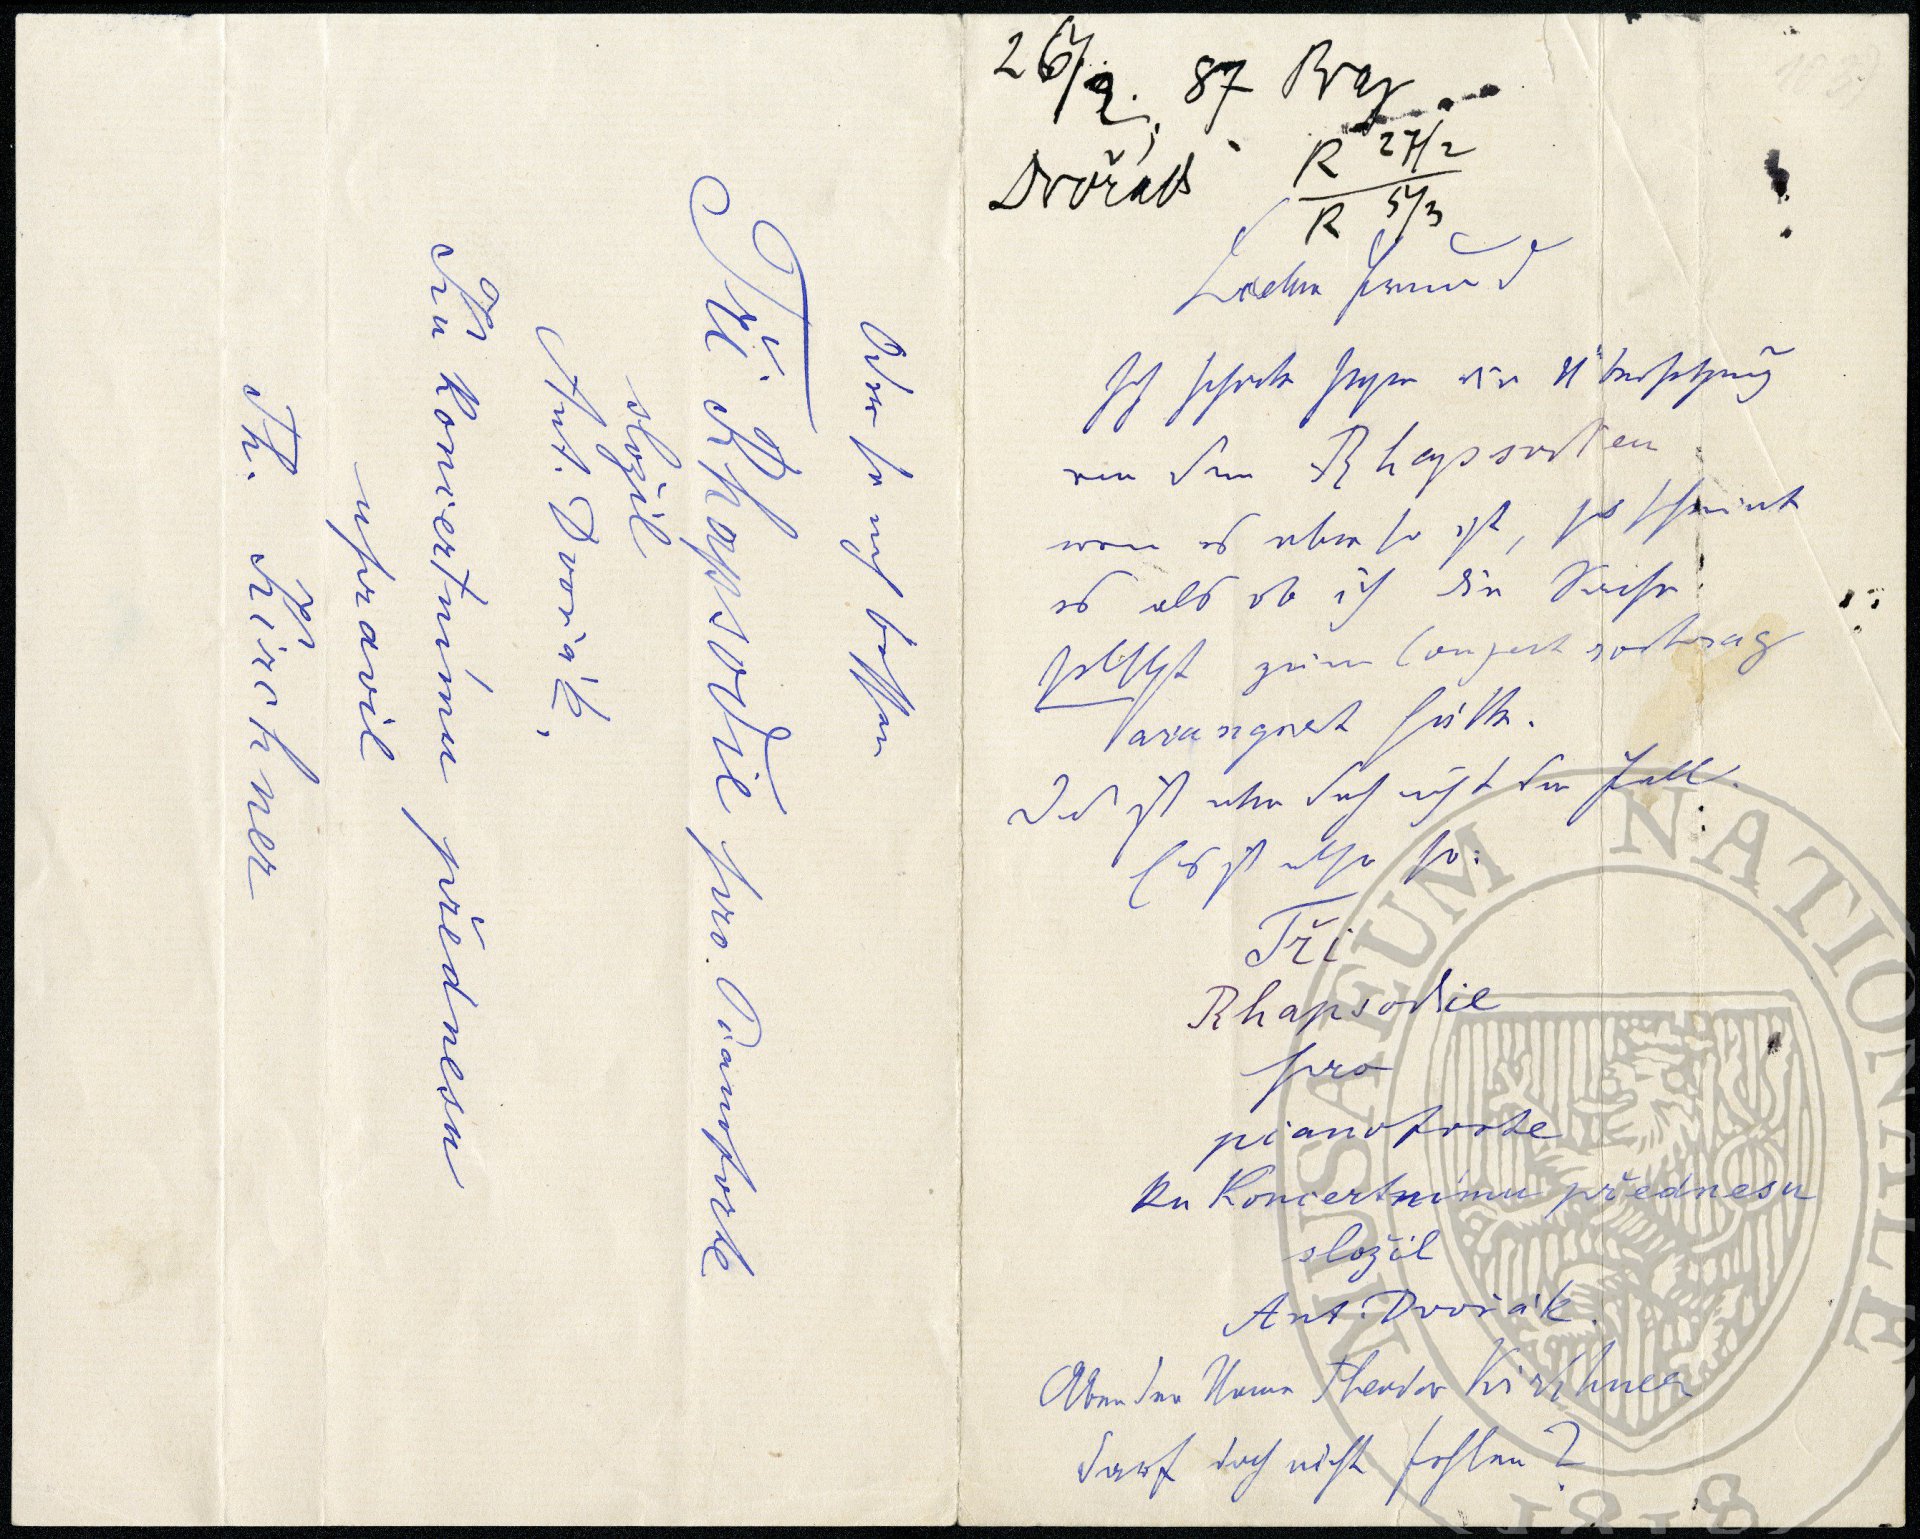 26/2. 87 Prag
Dvořák
R 27/2
R 5/3
Lieber Freund
Ich schicke Ihnen die Übersetzung
von den Rhapsodien
wen es aber so ist, so scheint
es als ob ich die Sache
selbst zum Conzertvortrag
arangiert hätte.
Das ist aber doch nicht der Fall.
Es ist also so:
Tři
Rhapsodie
pro
pianoforte
ku Koncertnímu přednesu
složil
Ant. Dvořák.
Aber der Name Theodor Kirchner
darf doch nicht fehlen?
Oder so noch besser
Tři Rhapsodie pro Pianoforte
složil
Ant. Dvořák,
Ku Koncertnímu přednesu
upravil
Th. Kirchner
MUSAEUM NATIONALE
1818